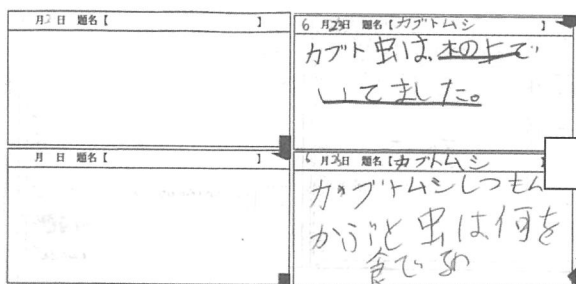 月 日 題名【 】
6月23日 題名【カブトムシ 】
カブト虫は、木の上で
いてました。
月 日 題名【 】
6月23日 題名【カブトムシ 】
カブトムシしつもん
かぶと虫は何を
食でるの